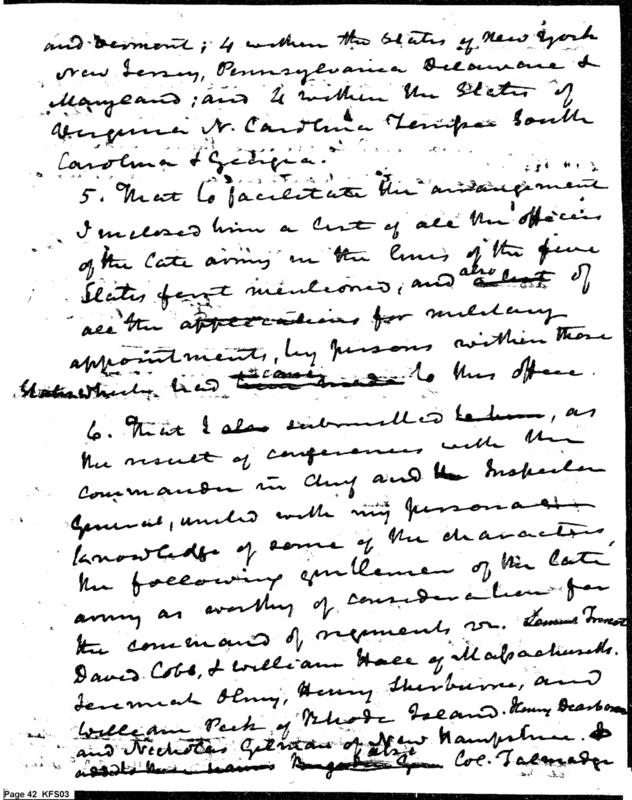 and Vermont; 4 within the States of New York
New Jersey, Pennsylvania Delaware &
Maryland; and 4 within the States of
Virginia N. Carolina Tennessee South
Carolina & Georgia.
5. That to facilitate the arrangement
I inclosed him a list of all the officers
of the late army in the lines of the five
States first mentioned, and also a list of
all the applications for military
appointments, by persons within those
States which had come been made to this office.
6. That I also submitted to him, as
the result of conferences with the
commander in chief and the Inspector
General, united with my personal
knowledge of some of the characters,
the following gentlemen of the late
army as worthy of consideration for
the command of regiments viz. Samuel
David Cobb, & William Hull of Massachusetts.
Jeremiah Olney, Henry Sherburne, and
William Peck of Rhode Island. Henry Dearborn
and Nicholas Gilman of New Hampshire. I
added these names also Col. Talmadge
Page 42 KFS03